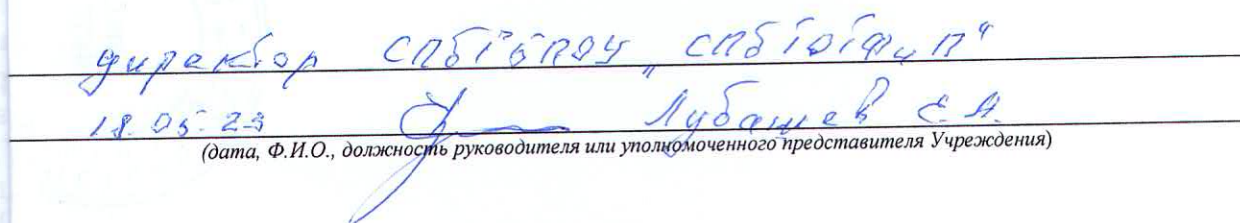 директор СПбГБПОУ „СПбТОТФиП“
18.05.23 Лубашев Е.А.
(дата, Ф.И.О., должность руководителя или уполномоченного представителя Учреждения)